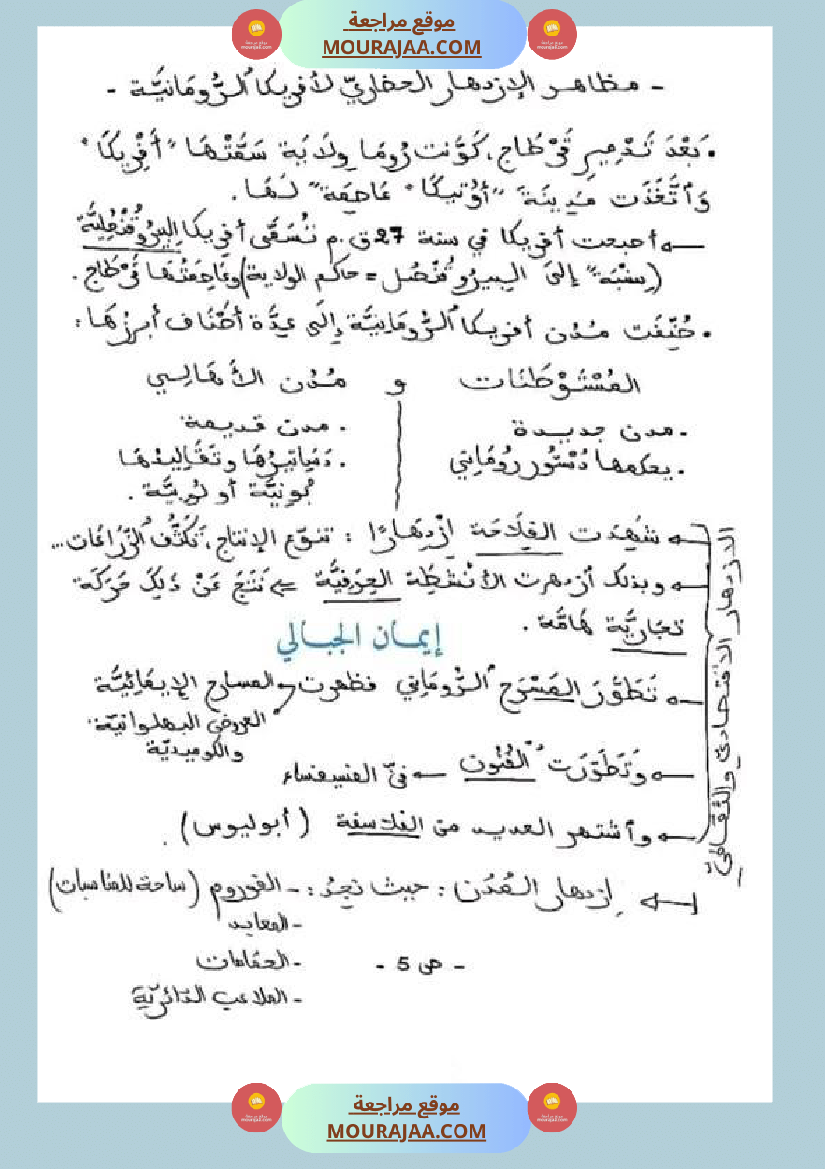 موقع مراجعة
MOURAJAA.COM
- مظاهر الازدهار الحضاريّ لأفريكا الرُّومَانيَّة -
• بَعْدَ تَدْمِيرِ قَرْطَاج، كَوَّنت رُومَا وِلَايَة سَمَّتْهَا "أَفْرِيكَا"
وَاتَّخَذَت مَدِينَة "أُوتِيكَا" عَاصِمَة" لَهَا.
← أصبحت أفريكا في سنة 27 ق.م تُسَمَّى أفريكا البروقنصليَّة
(نِسْبَة" إلَى البيروقُنْصُل = حاكم الولاية) وعَاصِمَتُهَا قَرْطَاج.
• صُنِّفَت مُدُن أفريكا الرُّومَانِيَّة إلَى عِدَّة أَصْنَاف أبرزُهَا:
المُسْتَوْطَنَات و مُدُن الأَهَالِي
• مدن جديدة
• مدن قديمة
• يحكمها دُسْتُور رُومَانِي
• دَسَاتِيرُهَا وتَقَالِيدُهَا
بُونِيَّة أو لُوبِيَّة.
الازدهار الاقتصاديّ والثّقافيّ
← شَهِدَت الفِلَاحَة ازْدِهَارًا : تنوّع الإنتاج، تَكَثُّف الزِّرَاعَات...
← وبذلك ازدهرت الأَنْشِطَة الحِرَفِيَّة ⇐ نَتَجَ عَنْ ذَلِكَ حَرَكَة
تجَارِيَّة هَامَّة.
إيمان الجبالي
← تَطَوَّرَ المَسْرَح الرُّومَانِي فظهرت المسارح الإيمَائِيَّة
العروض البهلوانيّة
والكوميديّة
← وَتَطَوَّرَت الفُنُون ← فنّ الفسيفساء
← واشتهر العديد من الفلاسفة (أبوليوس).
← ازدهار المُدُن : حيث نجِدُ : - الفوروم (ساحة للمناسبات)
- المعابد
- الحمّامات
- الملاعب الدّائريّة
- ص 5 -
موقع مراجعة
MOURAJAA.COM